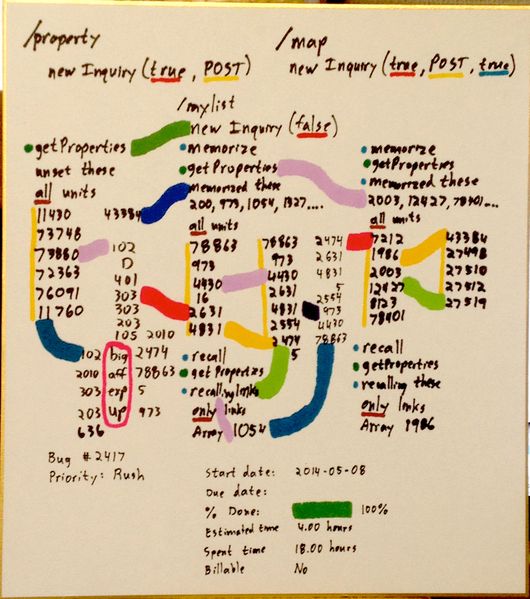 /property
new Inquiry (true, POST)
/map
new Inquiry (true, POST, true)
/mylist
new Inquiry (false)
getProperties
unset these
all units
11430
73748
73880
72363
76091
11760
43384
102
D
401
303
303
203
105 2010
102 big 2474
2010 aff 78863
303 exp 5
203 up 973
636
memorize
getProperties
memorized these
200, 973, 1054, 1327....
all units
78863
973
4430
16
2631
4831
78863
973
4430
2631
4831
2554
2474
5
recall
getProperties
recalling links
only links
Array 1054
2474
2631
4831
5
2554
973
4430
78863
memorize
getProperties
memorized these
2003, 12427, 78401...
all units
7212
1986
2003
12427
8123
78401
43384
27498
27510
27512
27519
recall
getProperties
recalling these
only links
Array 1986
Bug #2417
Priority: Rush
Start date: 2014-05-08
Due date:
% Done: 100%
Estimated time 4.00 hours
Spent time 18.00 hours
Billable No